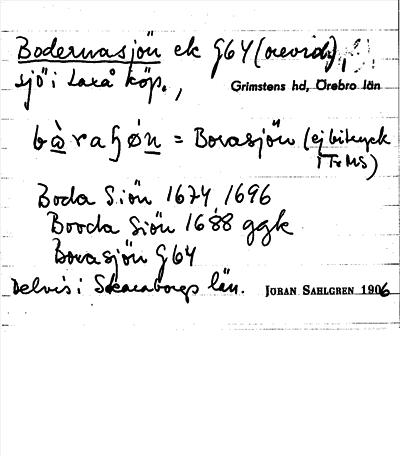 Bodernasjön ek G64 (orevid.),
sjö i Laxå köp.,
Grimstens hd, Örebro län
= Borasjön (ej bitryck
i TrMS)
Boda Siön 1674, 1696
Booda Siön 1688 ggk
Borasjön G64
Delvis i Skaraborgs län.
JÖRAN SAHLGREN 1906